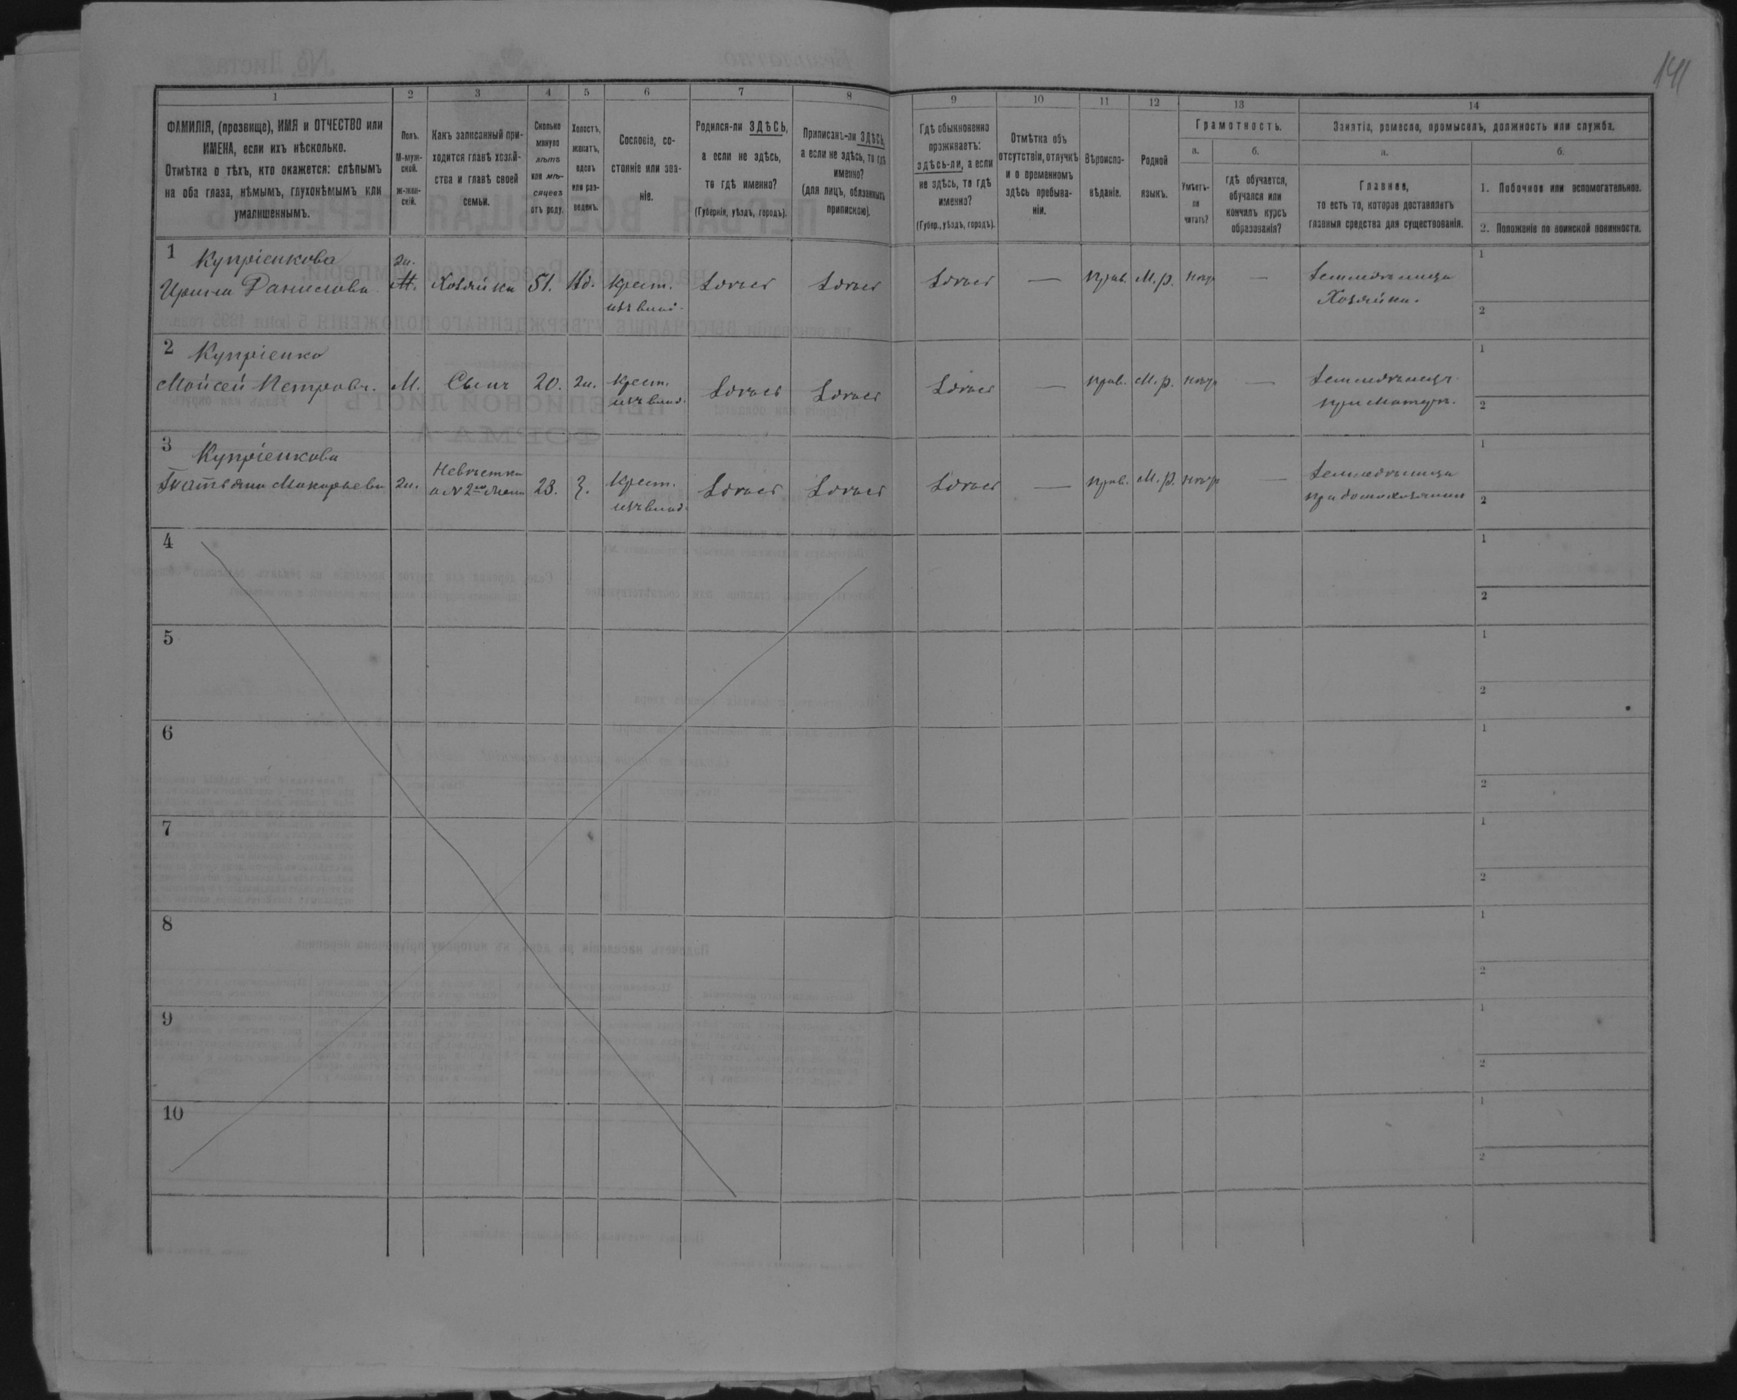 141
1 2 3 4 5 6 7 8 9 10 11 12 13 14
ФАМИЛІЯ, (прозвище), ИМЯ и ОТЧЕСТВО или
ИМЕНА, если ихъ нѣсколько.
Отмѣтка о тѣхъ, кто окажется: слѣпымъ
на оба глаза, нѣмымъ, глухонѣмымъ или
умалишеннымъ.
Полъ.
М-муж-
ской.
ж-жен-
скій.
Какъ записанный при-
ходится главѣ хозяй-
ства и главѣ своей
семьи.
Сколько
минуло
лѣтъ
или мѣ-
сяцевъ
отъ роду.
Холостъ,
женатъ,
вдовъ
или раз-
веденъ.
Сословіе, со-
стояніе или зва-
ніе.
Родился-ли ЗДѢСЬ,
а если не здѣсь,
то гдѣ именно?
(Губернія, уѣздъ, городъ).
Приписанъ-ли ЗДѢСЬ,
а если не здѣсь, то гдѣ
именно?
(для лицъ, обязанныхъ
припискою).
Гдѣ обыкновенно
проживаетъ:
здѣсь-ли, а если
не здѣсь, то гдѣ
именно?
(Губер., уѣздъ, городъ).
Отмѣтка объ
отсутствіи, отлучкѣ
и о временномъ
здѣсь пребыва-
ніи.
Вѣроиспо-
вѣданіе.
Родной
языкъ.
Грамотность.
а.
Умѣетъ-
ли
читать?
б.
гдѣ обучается,
обучался или
кончилъ курсъ
образованія?
Занятіе, ремесло, промыселъ, должность или служба.
а.
Главное,
то есть то, которое доставляетъ
главныя средства для существованія.
б.
1. Побочное или вспомогательное.
2. Положеніе по воинской повинности.
1 Купріенкова
Ирина Данилова Хозяйка 51. Вд. Крест.
изъ влад. Здѣсь Здѣсь Здѣсь — прав. М.р. нѣтъ — Земледѣлица
Хозяйка.
1
2
2 Купріенко
Мойсей Петровъ. М. Сынъ 20. Крест.
изъ влад. Здѣсь Здѣсь Здѣсь — прав. М.р. нѣтъ — Земледѣлецъ
при матери.
1
2
3 Купріенкова
Татьяна Макарьева Невѣстка 23. З. Крест.
изъ влад. Здѣсь Здѣсь Здѣсь — прав. М.р. нѣтъ — Земледѣлица
1
2
4
1
2
5
1
2
6
1
2
7
1
2
8
1
2
9
1
2
10
1
2